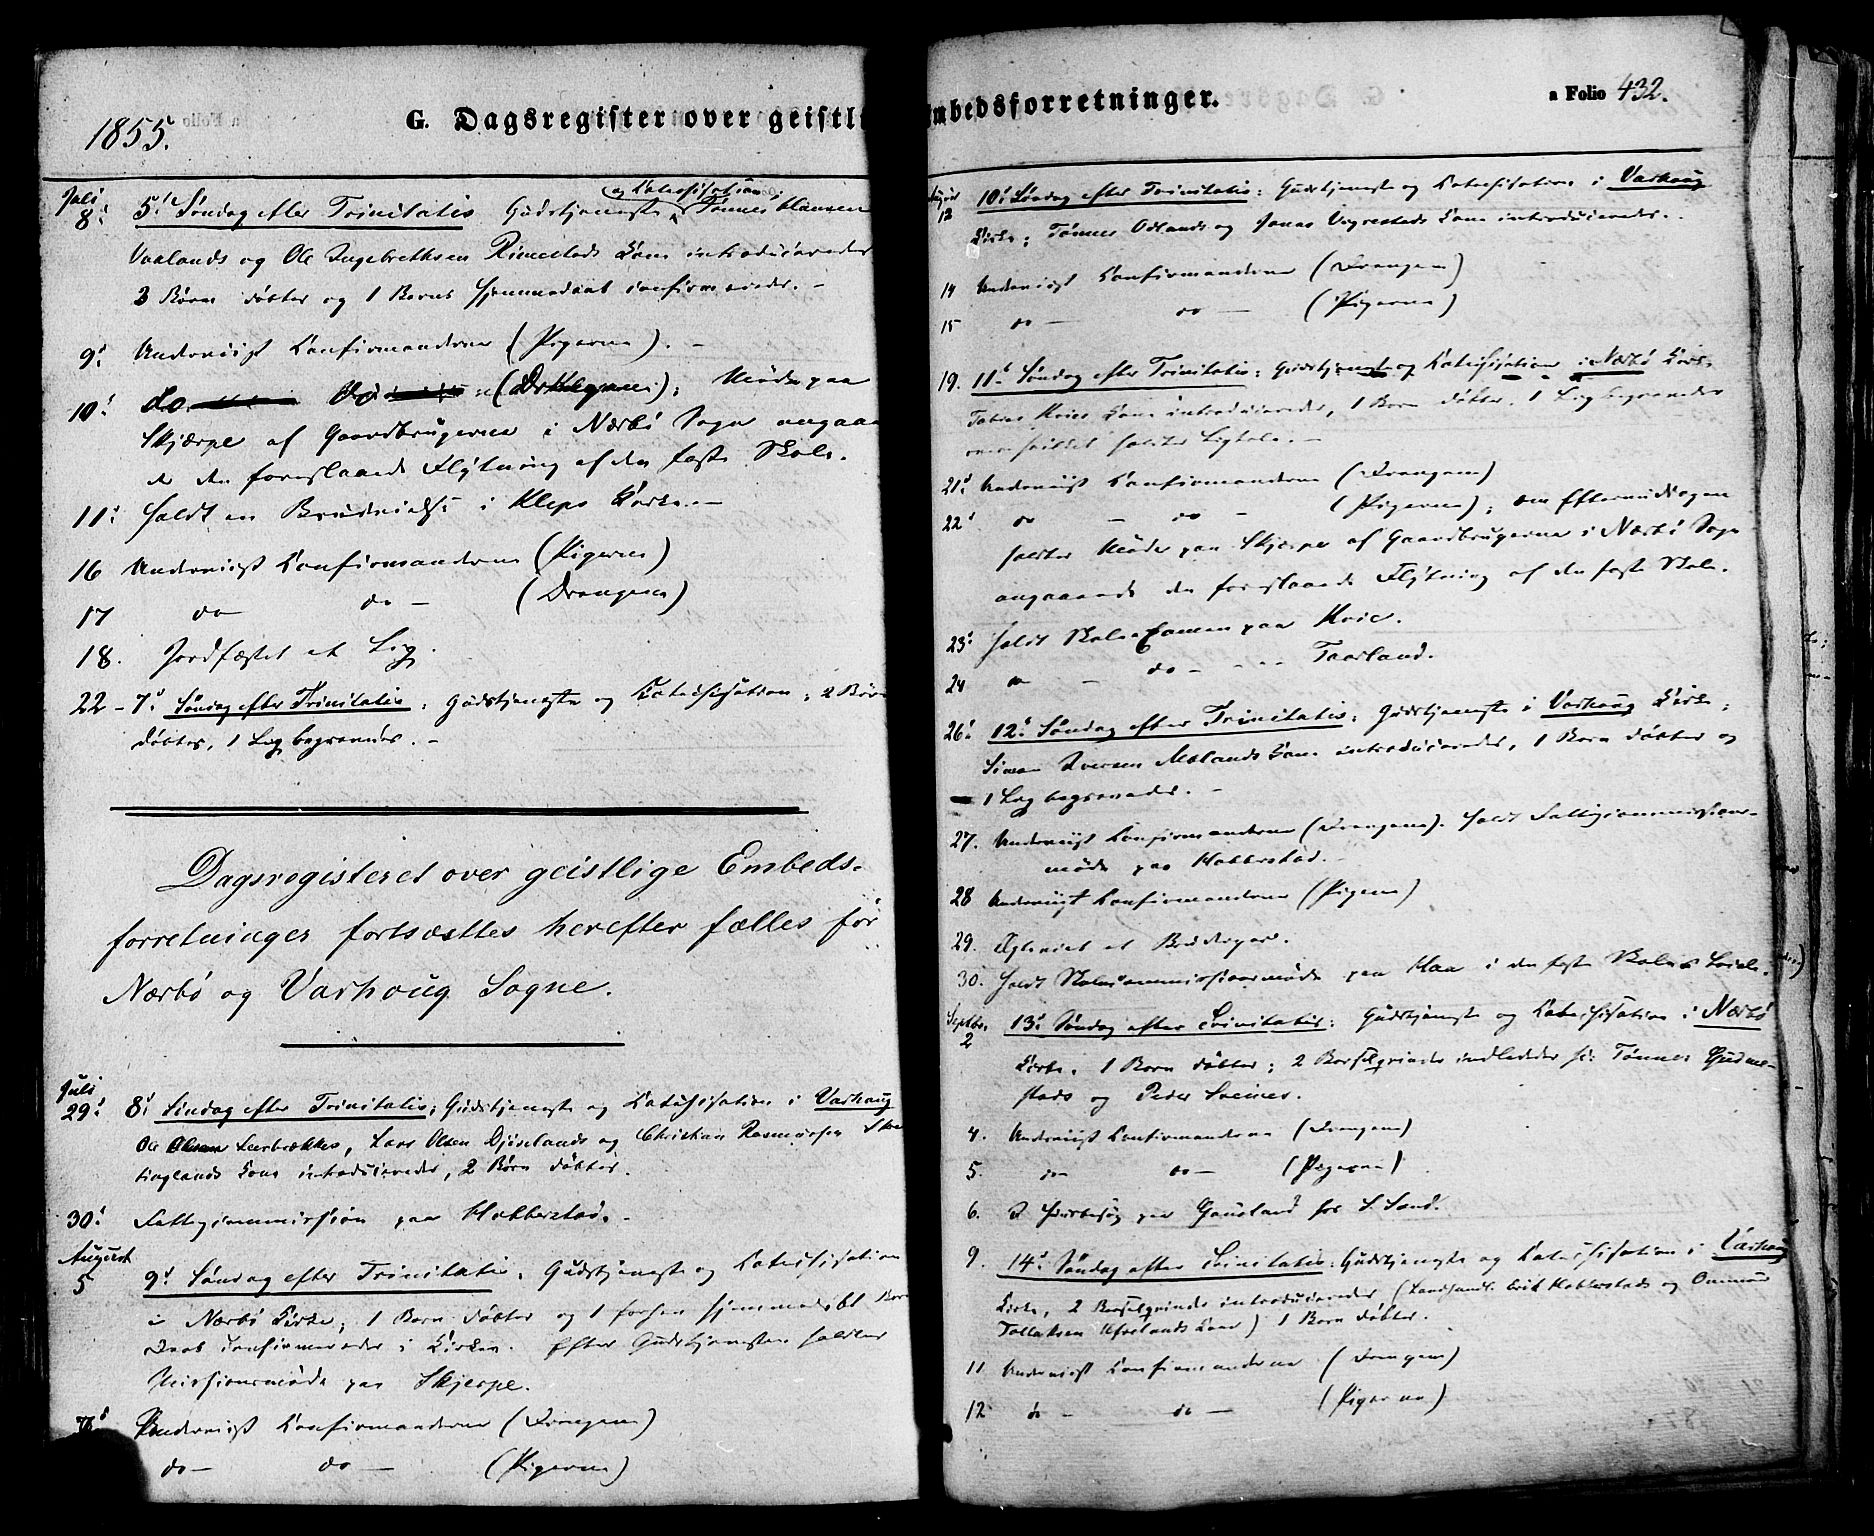 1855.
G. Dagsregister over geistli
Juli
og Katechisation
8. 5te Søndag efter Trinitatis Gudstjeneste Tønnes Hansen
Vaalands og Ole Ingebrethsen Rimestads Kone introduceredes
3 Børn døbtes og 1 Barns Hjemmedaab confirmeredes. -
9. Underviist Confirmanderne (Pigerne). -
10. do do (Drengene); Møde paa
Skjærpe af Gaardbrugerne i Nærbø Sogn angaaen
de den foreslaaede Flytning af den faste Skole.
11. holdt en Brudevielse i Kleps Kirke. -
16 Underviist Confirmanderne (Pigerne)
17 do do - (Drengene)
18. Jordfæstet et Lig.
22 - 7de Søndag efter Trinitatis, Gudstjeneste og Katechisation; 2 Børn
døbtes, 1 Lig begravedes. -
Dagsregisteret over geistlige Embeds-
forretninger fortsættes herefter fælles for
Nærbø og Varhoug Sogne.
Juli
29. 8de Søndag efter Trinitatis; Gudstjeneste og Katechisation i Varhaug
Ole Leerbrækkes, Lars Olsen Djøselands og Christian Rasmussen
tinglands Kone introduceredes, 2 Børn døbtes.
30. Fattigcommission paa Hobberstad. -
August
5 9de Søndag efter Trinitatis; Gudstjeneste og Katechisation
i Nærbø Kirke; 1 Barn døbtes og 1 forhen hjemmedøbt Barns
Daab confirmeredes i Kirken. Efter Gudstjenesten holdtes
Missionsmøde paa Skjerpe.
Underviist Confirmanderne (Drengene)
do - do - (Pigerne)
mbedsforretninger.
a Folio 432.
August
12 10de Søndag efter Trinitatis; Gudstjeneste og Katechisation i Varhoug
Kirke; Tønnes Odlands og Jonas Vigrestads Kone introduceredes. -
14 Underviist Confirmanderne (Drengene)
15 do - do - (Pigerne)
19. 11te Søndag efter Trinitatis; Gudstjeneste og Katechisation i Nærbø Kirke
Tobias Hvies Kone introduceredes, 1 Barn døbtes, 1 Lig begravedes
over hvilket holdtes Ligtale. -
21. Underviist Confirmanderne (Drengene)
22. do - do - (Pigerne); om Eftermiddagen
holdtes Møde paa Skjerpe af Gaardbrugerne i Nærbø Sogn
angaaende den foreslaaede Flytning af den faste Skole.
23. holdt Skole-Examen paa Hvie.
24 do - do - Taarland.
26. 12te Søndag efter Trinitatis; Gudstjeneste i Varhoug Kirke;
Simon Iversen Aboelands Kone introduceredes, 1 Barn døbtes og
1 Lig begravedes. -
27. Underviist Confirmanderne (Drengene). holdt Fattigcommissions-
møde paa Hobberstad. -
28 Underviist Confirmanderne (Pigerne)
29. Egteviet et Brudepar.
30. holdt Skolecommissionsmøde paa Haa i den faste Skoles Locale.
Septbr.
2 13de Søndag efter Trinitatis; Gudstjeneste og Katechisation i Nærbø
Kirke, 1 Barn døbtes; 2 Barselqvinder indlededes: Tønnes Gudme-
stads og Peder
4. Underviist Confirmanderne (Drengene)
5. do - do - (Pigerne)
6. I paa Gausland for S. Sand.
9. 14de Søndag efter Trinitatis; Gudstjeneste og Katechisation i Varhoug
Kirke, 2 Barselqvinder introduceredes (Landhandl. Erik Hobberstads og Ommund
Tollaksen Kone) 1 Barn døbtes.
11 Underviist Confirmanderne (Drengene)
12 do - do - (Pigerne)